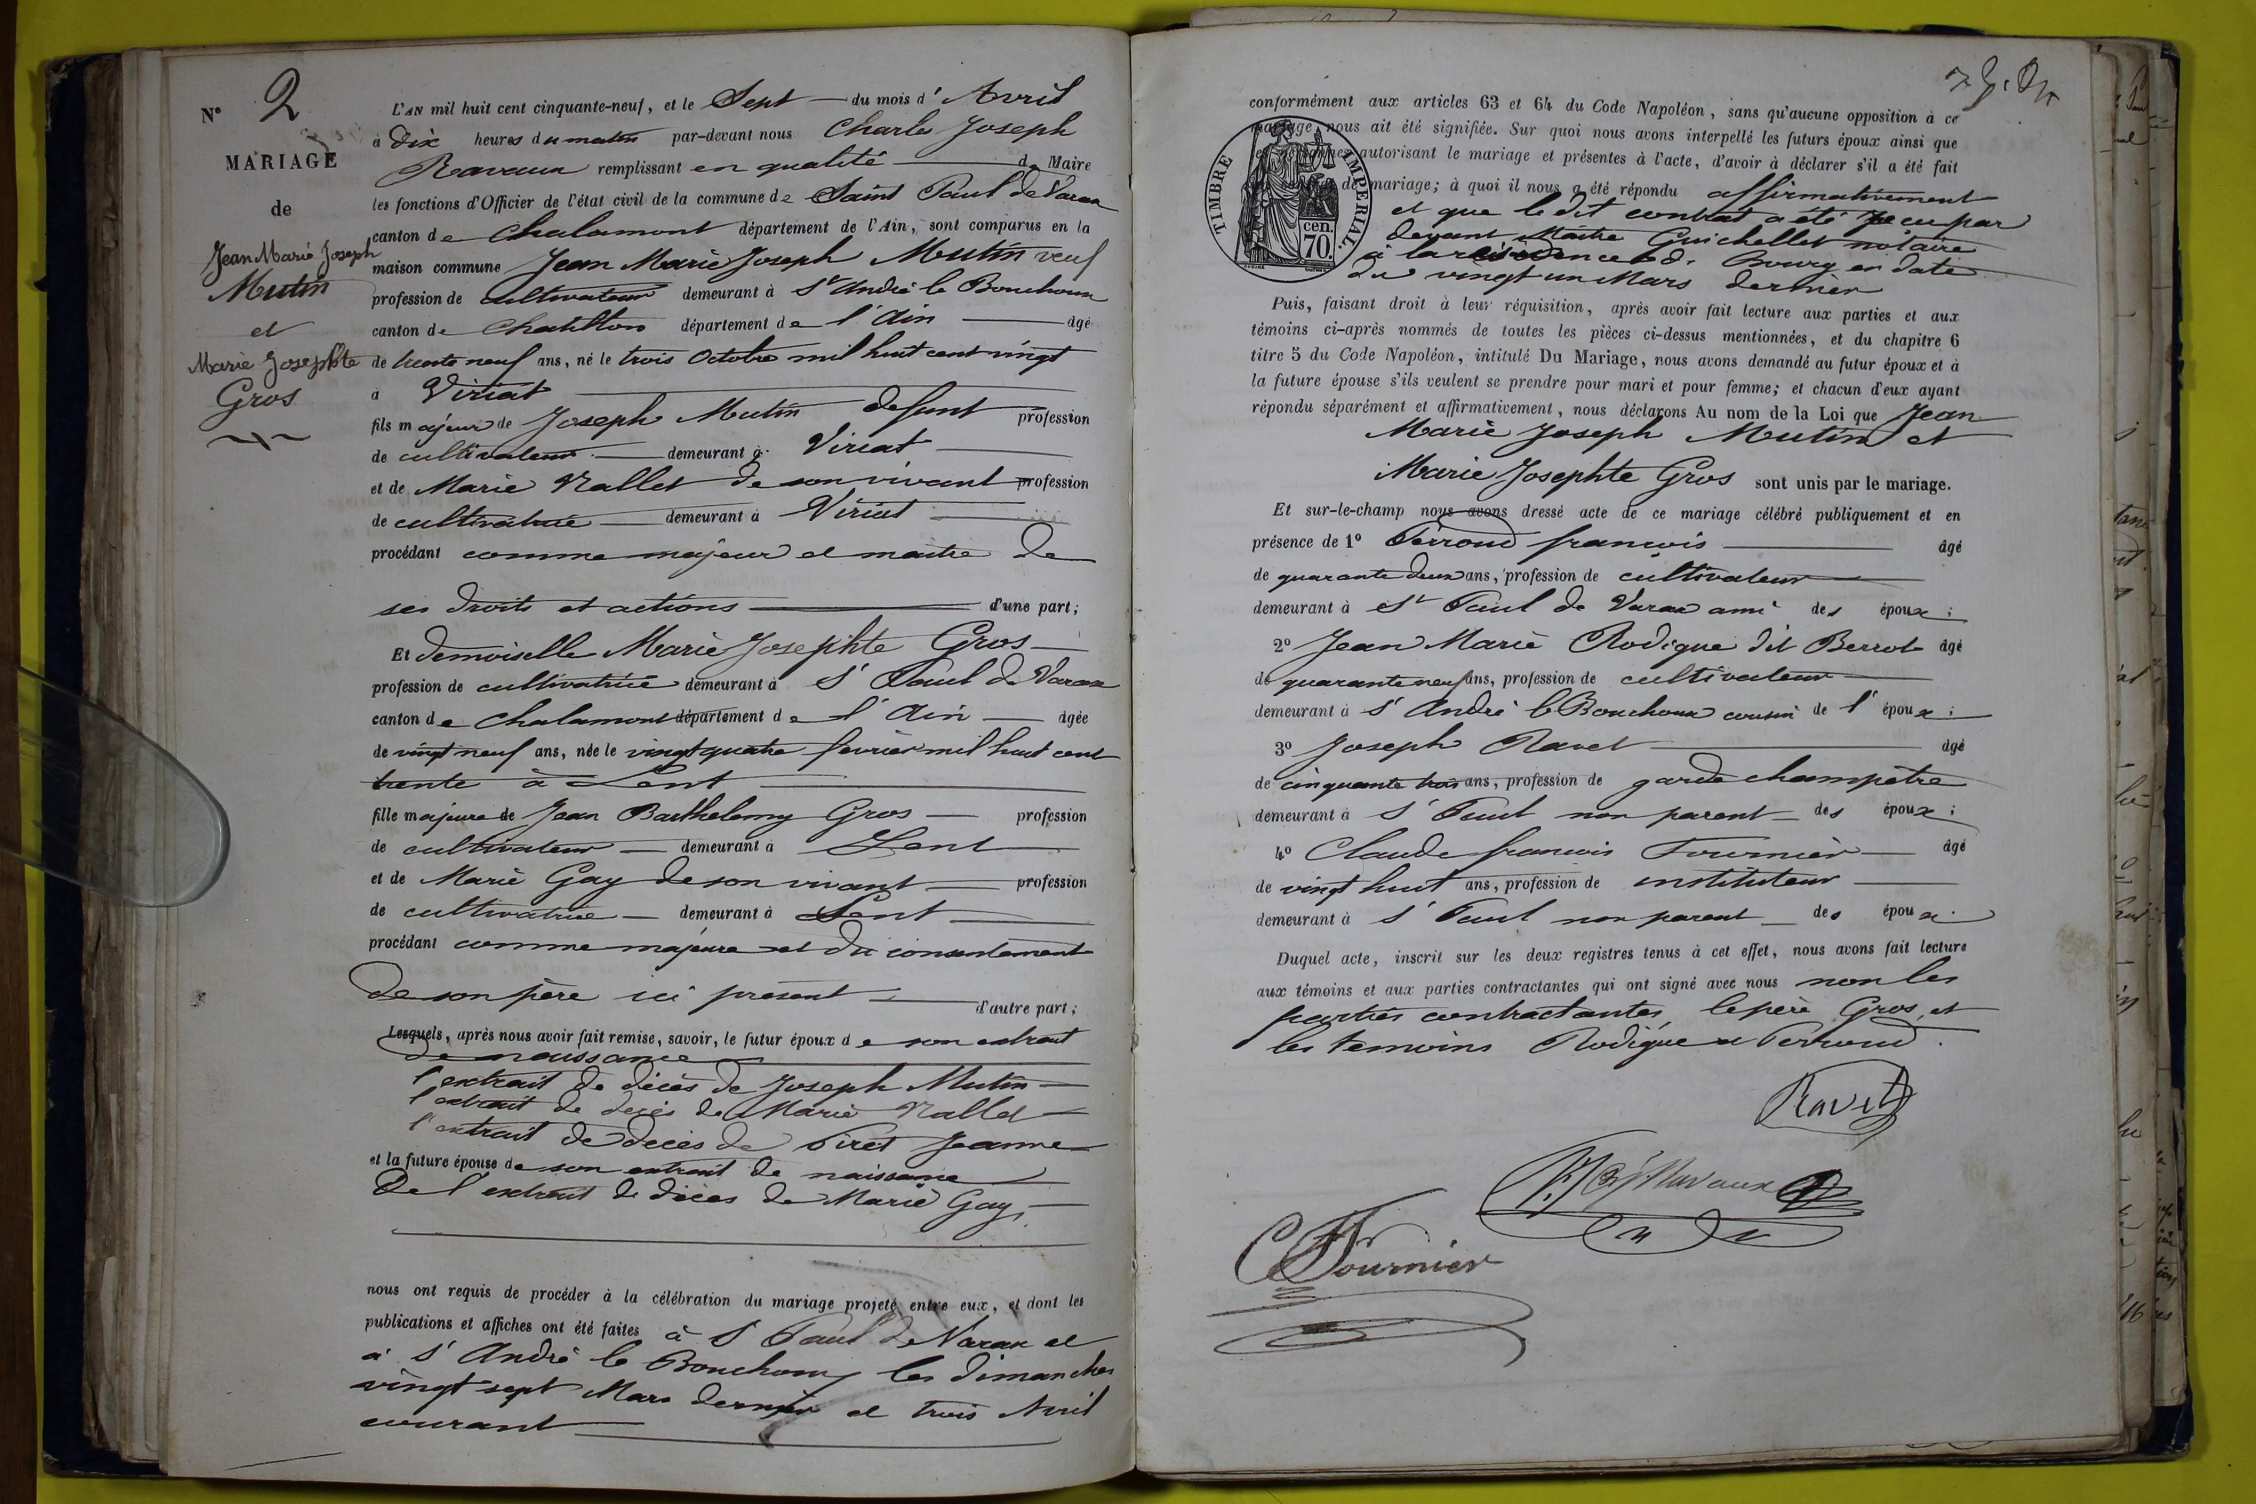 N° 2
MARIAGE
de
Jean Marie Joseph
Mutin
et
Marie Josephte
Gros
L'AN mil huit cent cinquante-neuf, et le Sept du mois d'Avril
à dix heures du matin par-devant nous Charles Joseph
Ravaux remplissant en qualité de Maire
les fonctions d'Officier de l'état civil de la commune de Saint Paul de Varax
canton de Chalamont département de l'Ain, sont comparus en la
maison commune Jean Marie Joseph Mutin veuf
profession de cultivateur demeurant à St André le Bouchoux
canton de Chatillon département de l'Ain âgé
de trente neuf ans, né le trois Octobre mil huit cent vingt
à Viriat
fils majeur de Joseph Mutin defunt profession
de cultivateur demeurant à Viriat
et de Marie Nallet de son vivant profession
de cultivatrice demeurant à Viriat
procédant comme majeur et maitre de
ses droits et actions d'une part;
Et demoiselle Marie Josephte Gros
profession de cultivatrice demeurant à St Paul de Varax
canton de Chalamont département de l'Ain âgée
de vingt neuf ans, née le vingt quatre fevrier mil huit cent
trente à Lent
fille majeure de Jean Barthelemy Gros profession
de cultivateur demeurant à Lent
et de Marie Gay de son vivant profession
de cultivatrice demeurant à Lent
procédant comme majeure et du consentement
de son père ici présent d'autre part;
Lesquels, après nous avoir fait remise, savoir, le futur époux de son extrait
de naissance
l'extrait de décès de Joseph Mutin
l'extrait de decès de Marie Nallet
l'extrait de decès de Piret Jeanne
et la future épouse de son extrait de naissance
De l'extrait de dices de Marie Gay,
nous ont requis de procéder à la célébration du mariage projeté entre eux, et dont les
publications et affiches ont été faites à St Paul de Varax et
à St André le Bouchoux les dimanches
vingt sept Mars dernier et trois Avril
courant
conformément aux articles 63 et 64 du Code Napoléon, sans qu'aucune opposition à ce
mariage nous ait été signifiée. Sur quoi nous avons interpellé les futurs époux ainsi que
les personnes autorisant le mariage et présentes à l'acte, d'avoir à déclarer s'il a été fait
de mariage; à quoi il nous a été répondu affirmativement
et que le dit contrat a été recu par
devant Maitre Guichellet notaire
à la résidence de Bourg en date
du vingt un Mars dernier
TIMBRE IMPERIAL.
70 cen.
Puis, faisant droit à leur réquisition, après avoir fait lecture aux parties et aux
témoins ci-après nommés de toutes les pièces ci-dessus mentionnées, et du chapitre 6
titre 5 du Code Napoléon, intitulé Du Mariage, nous avons demandé au futur époux et à
la future épouse s'ils veulent se prendre pour mari et pour femme; et chacun d'eux ayant
répondu séparément et affirmativement, nous déclarons Au nom de la Loi que Jean
Marie Joseph Mutin et
Marie Josephte Gros sont unis par le mariage.
Et sur-le-champ nous avons dressé acte de ce mariage célébré publiquement et en
présence de 1° Perroud francois âgé
de quarante deux ans, profession de cultivateur
demeurant à St Paul de Varax ami des époux;
2° Jean Marie Rodigue dit Berrot âgé
de quarante neuf ans, profession de cultivateur
demeurant à St André le Bouchoux cousin de l'époux;
3° Joseph Ravet âgé
de cinquante trois ans, profession de garde champêtre
demeurant à St Paul non parent des époux;
4° Claude francois Fournier âgé
de vingt huit ans, profession de instituteur
demeurant à St Paul non parent des époux.
Duquel acte, inscrit sur les deux registres tenus à cet effet, nous avons fait lecture
aux témoins et aux parties contractantes qui ont signé avec nous non les
parties contractantes, le père Gros, et
les temoins Rodigue et Perroud.
Ravet
Ravaux
C F Fournier